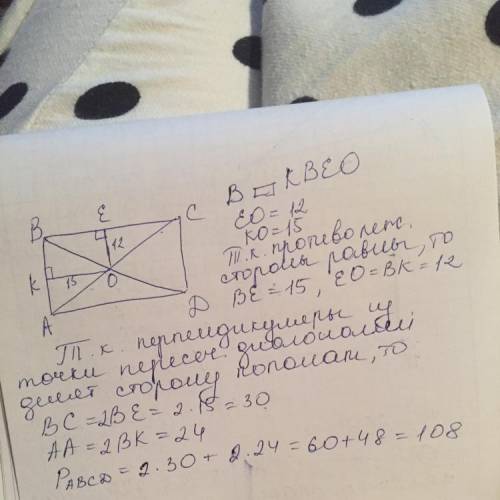 B E C
12
K 15 O
A D
В ▭ KBEO
EO = 12
KO = 15
Т.к. противолеж.
стороны равны, то
BE = 15, EO = BK = 12
Т.к. перпендикуляры из
точки пересеч диагоналей
делят сторону пополам, то
BC = 2BE = 2·15 = 30
AA = 2BK = 24
PABCD = 2·30 + 2·24 = 60 + 48 = 108